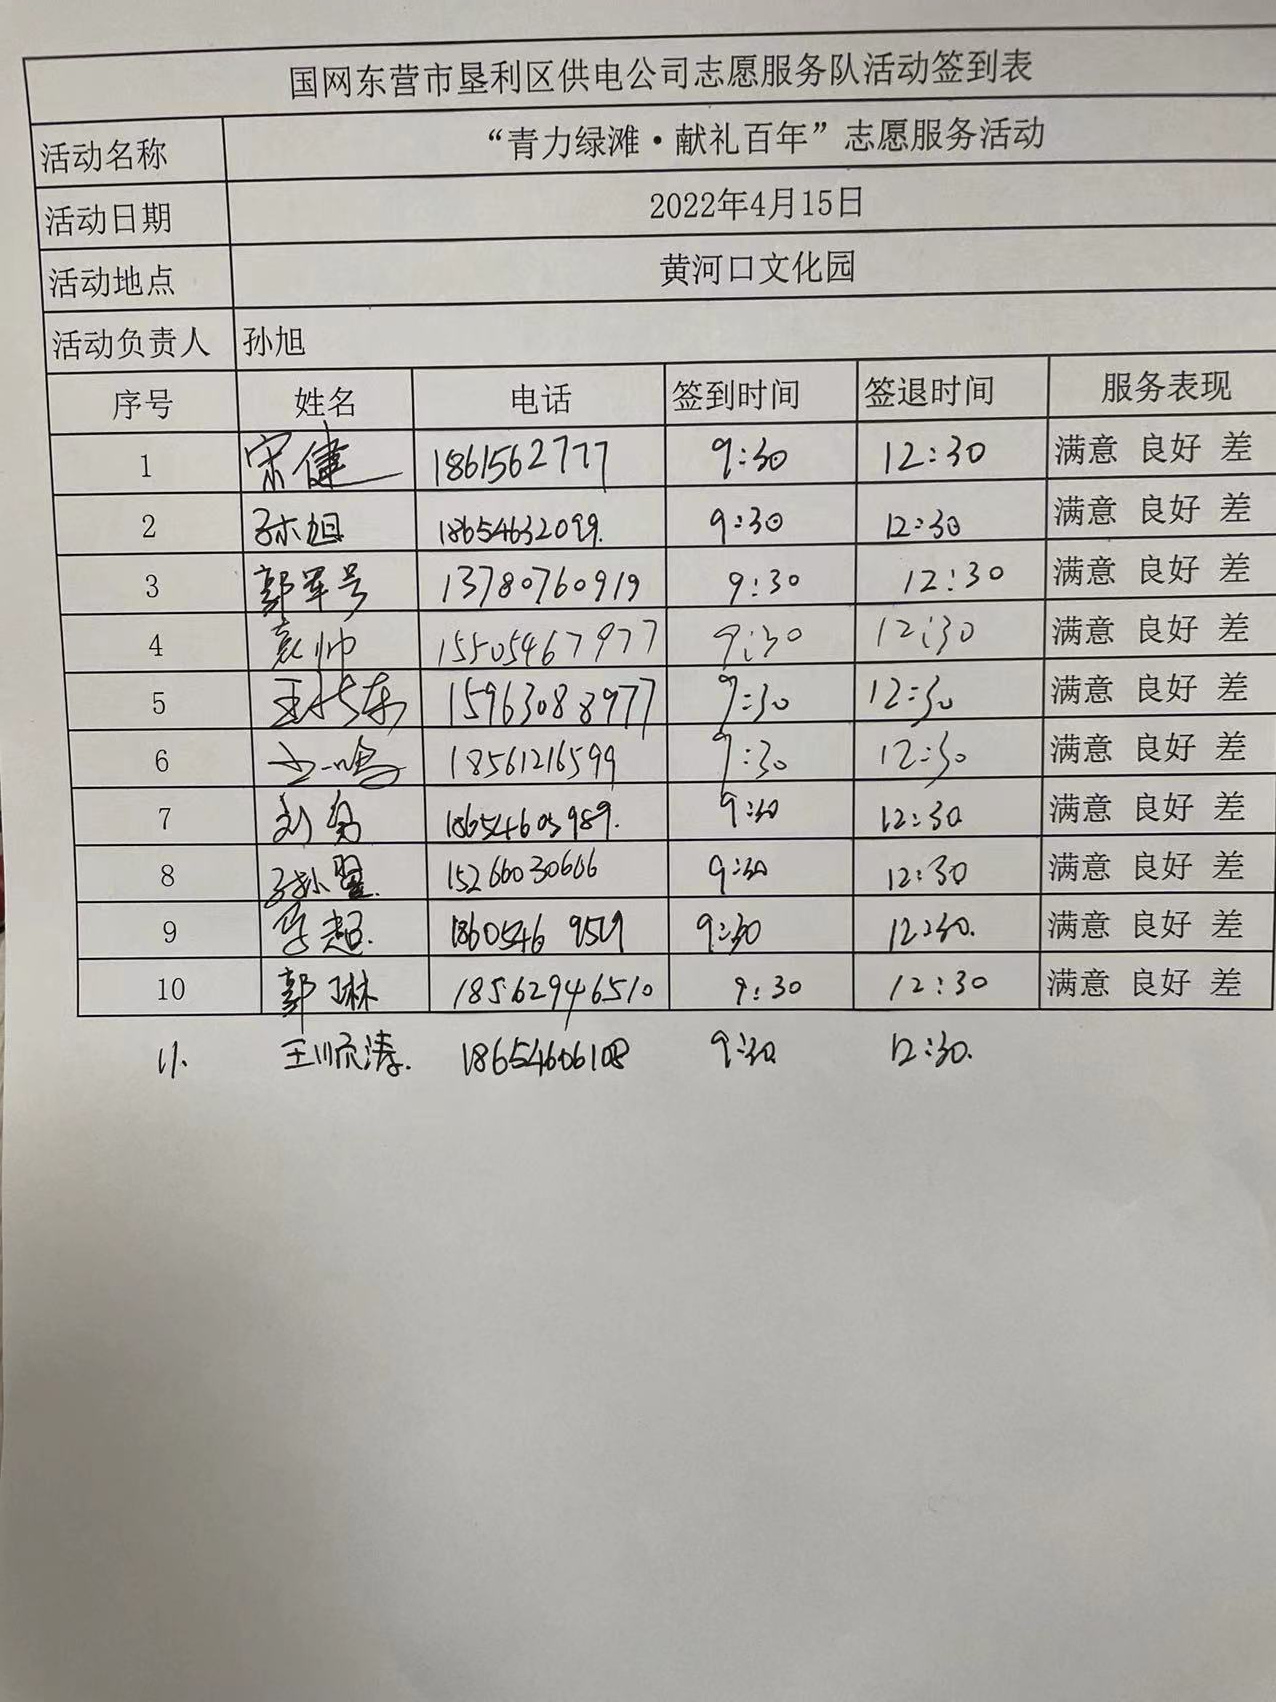 国网东营市垦利区供电公司志愿服务队活动签到表
活动名称 “青力绿滩·献礼百年”志愿服务活动
活动日期 2022年4月15日
活动地点 黄河口文化园
活动负责人 孙旭
序号 姓名 电话 签到时间 签退时间 服务表现
1 宋健 1861562777 9:30 12:30 满意 良好 差
2 孙旭 18654632099. 9:30 12:30 满意 良好 差
3 郭军号 13780760919 9:30 12:30 满意 良好 差
4 袁帅 15505467977 9:30 12:30 满意 良好 差
5 15963088977 9:30 12:30 满意 良好 差
6 18561216599 9:30 12:30 满意 良好 差
7 刘勇 18654605989. 9:30 12:30 满意 良好 差
8 15266030666 9:30 12:30 满意 良好 差
9 李超. 9:30 12:30. 满意 良好 差
10 郭琳 18562946510 9:30 12:30 满意 良好 差
11. 王顺涛. 18654606108 9:30 12:30.